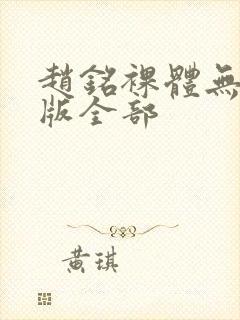 趙銘裸體無
版全部
黃琪